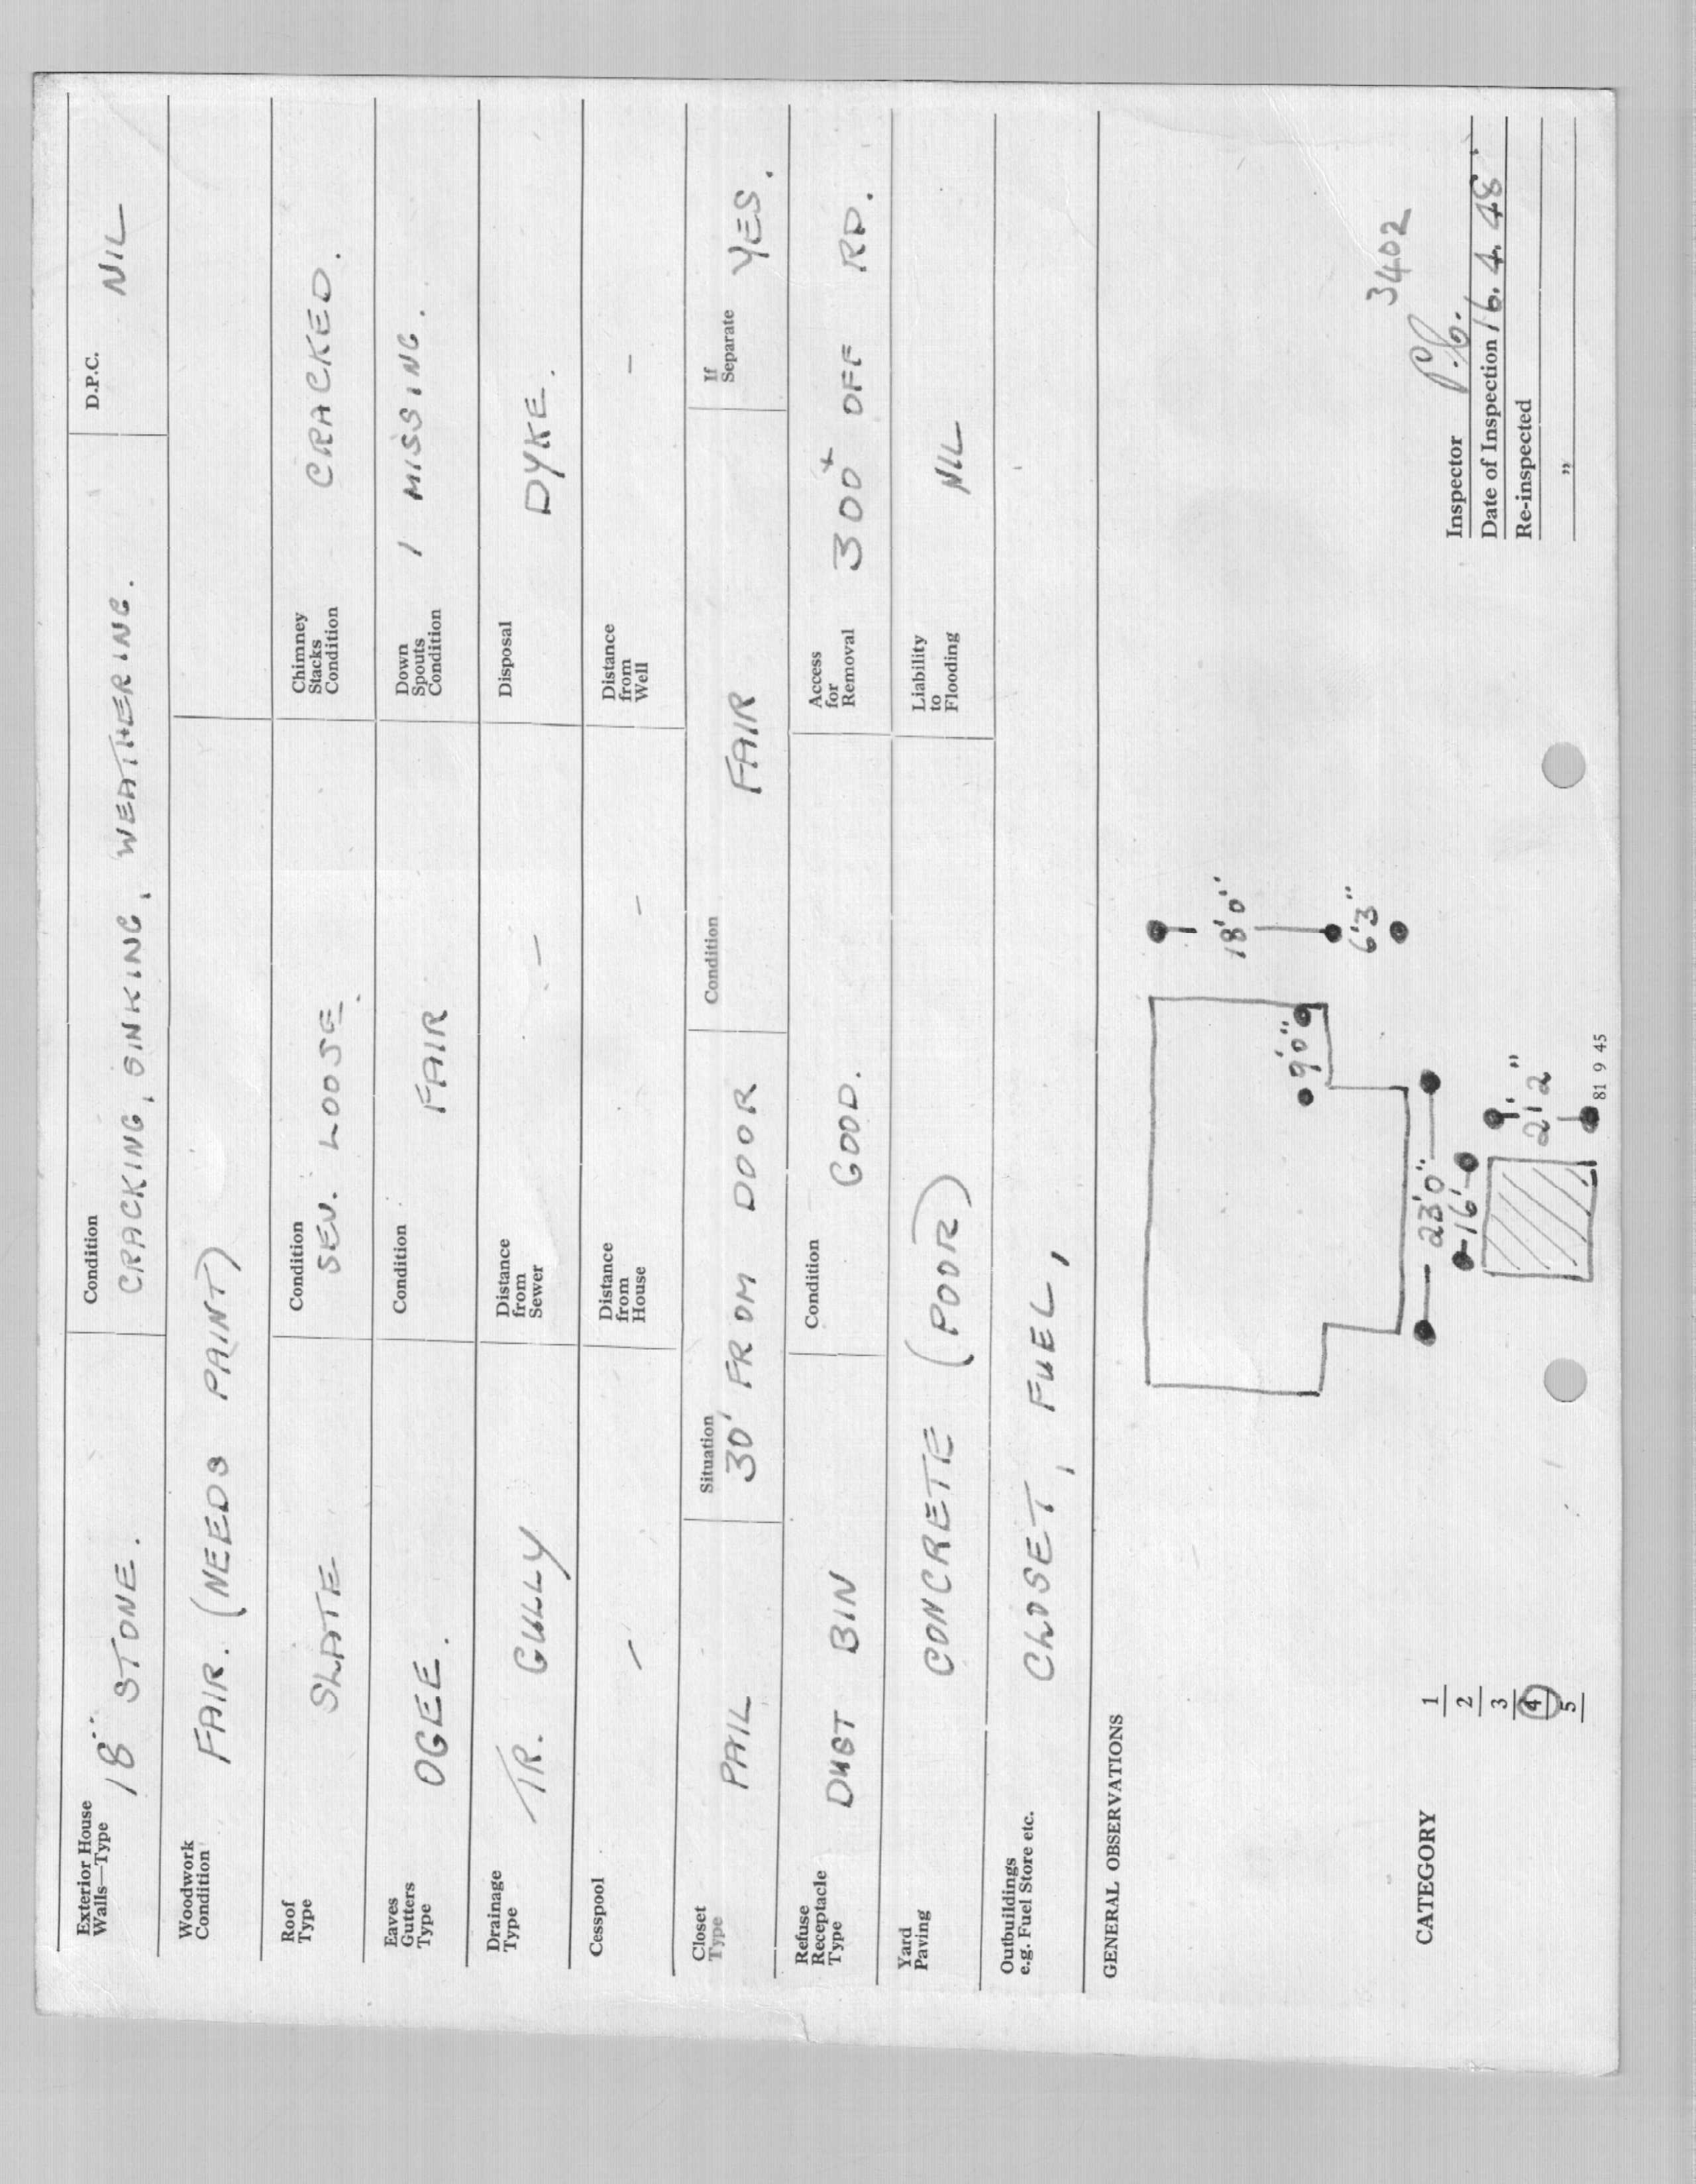 Exterior House
Walls—Type
18" STONE.
Condition
CRACKING, SINKING, WEATHERING.
D.P.C.
NIL
Woodwork
Condition
FAIR. (NEEDS PAINT)
Roof
Type
SLATE
Condition
SEV. LOOSE.
Chimney
Stacks
Condition
CRACKED.
Eaves
Gutters
Type
OGEE.
Condition
FAIR
Down
Spouts
Condition
1 MISSING.
Drainage
Type
TR. GULLY
Distance
from
Sewer
—
Disposal
DYKE.
Cesspool
—
Distance
from
House
—
Distance
from
Well
—
Closet
Type
PAIL
Situation
30' FROM DOOR
Condition
FAIR
If
Separate
YES.
Refuse
Receptacle
Type
DUST BIN
Condition
GOOD.
Access
for
Removal
300+ OFF RD.
Yard
Paving
CONCRETE (POOR)
Liability
to
Flooding
NIL
Outbuildings
e.g. Fuel Store etc.
CLOSET, FUEL,
GENERAL OBSERVATIONS
18'0"
9'0"
6'3"
23'0"
16'
2'2"
3402
CATEGORY
1
2
3
4
5
Inspector
Date of Inspection 16.4.48
Re-inspected
"
81 9 45